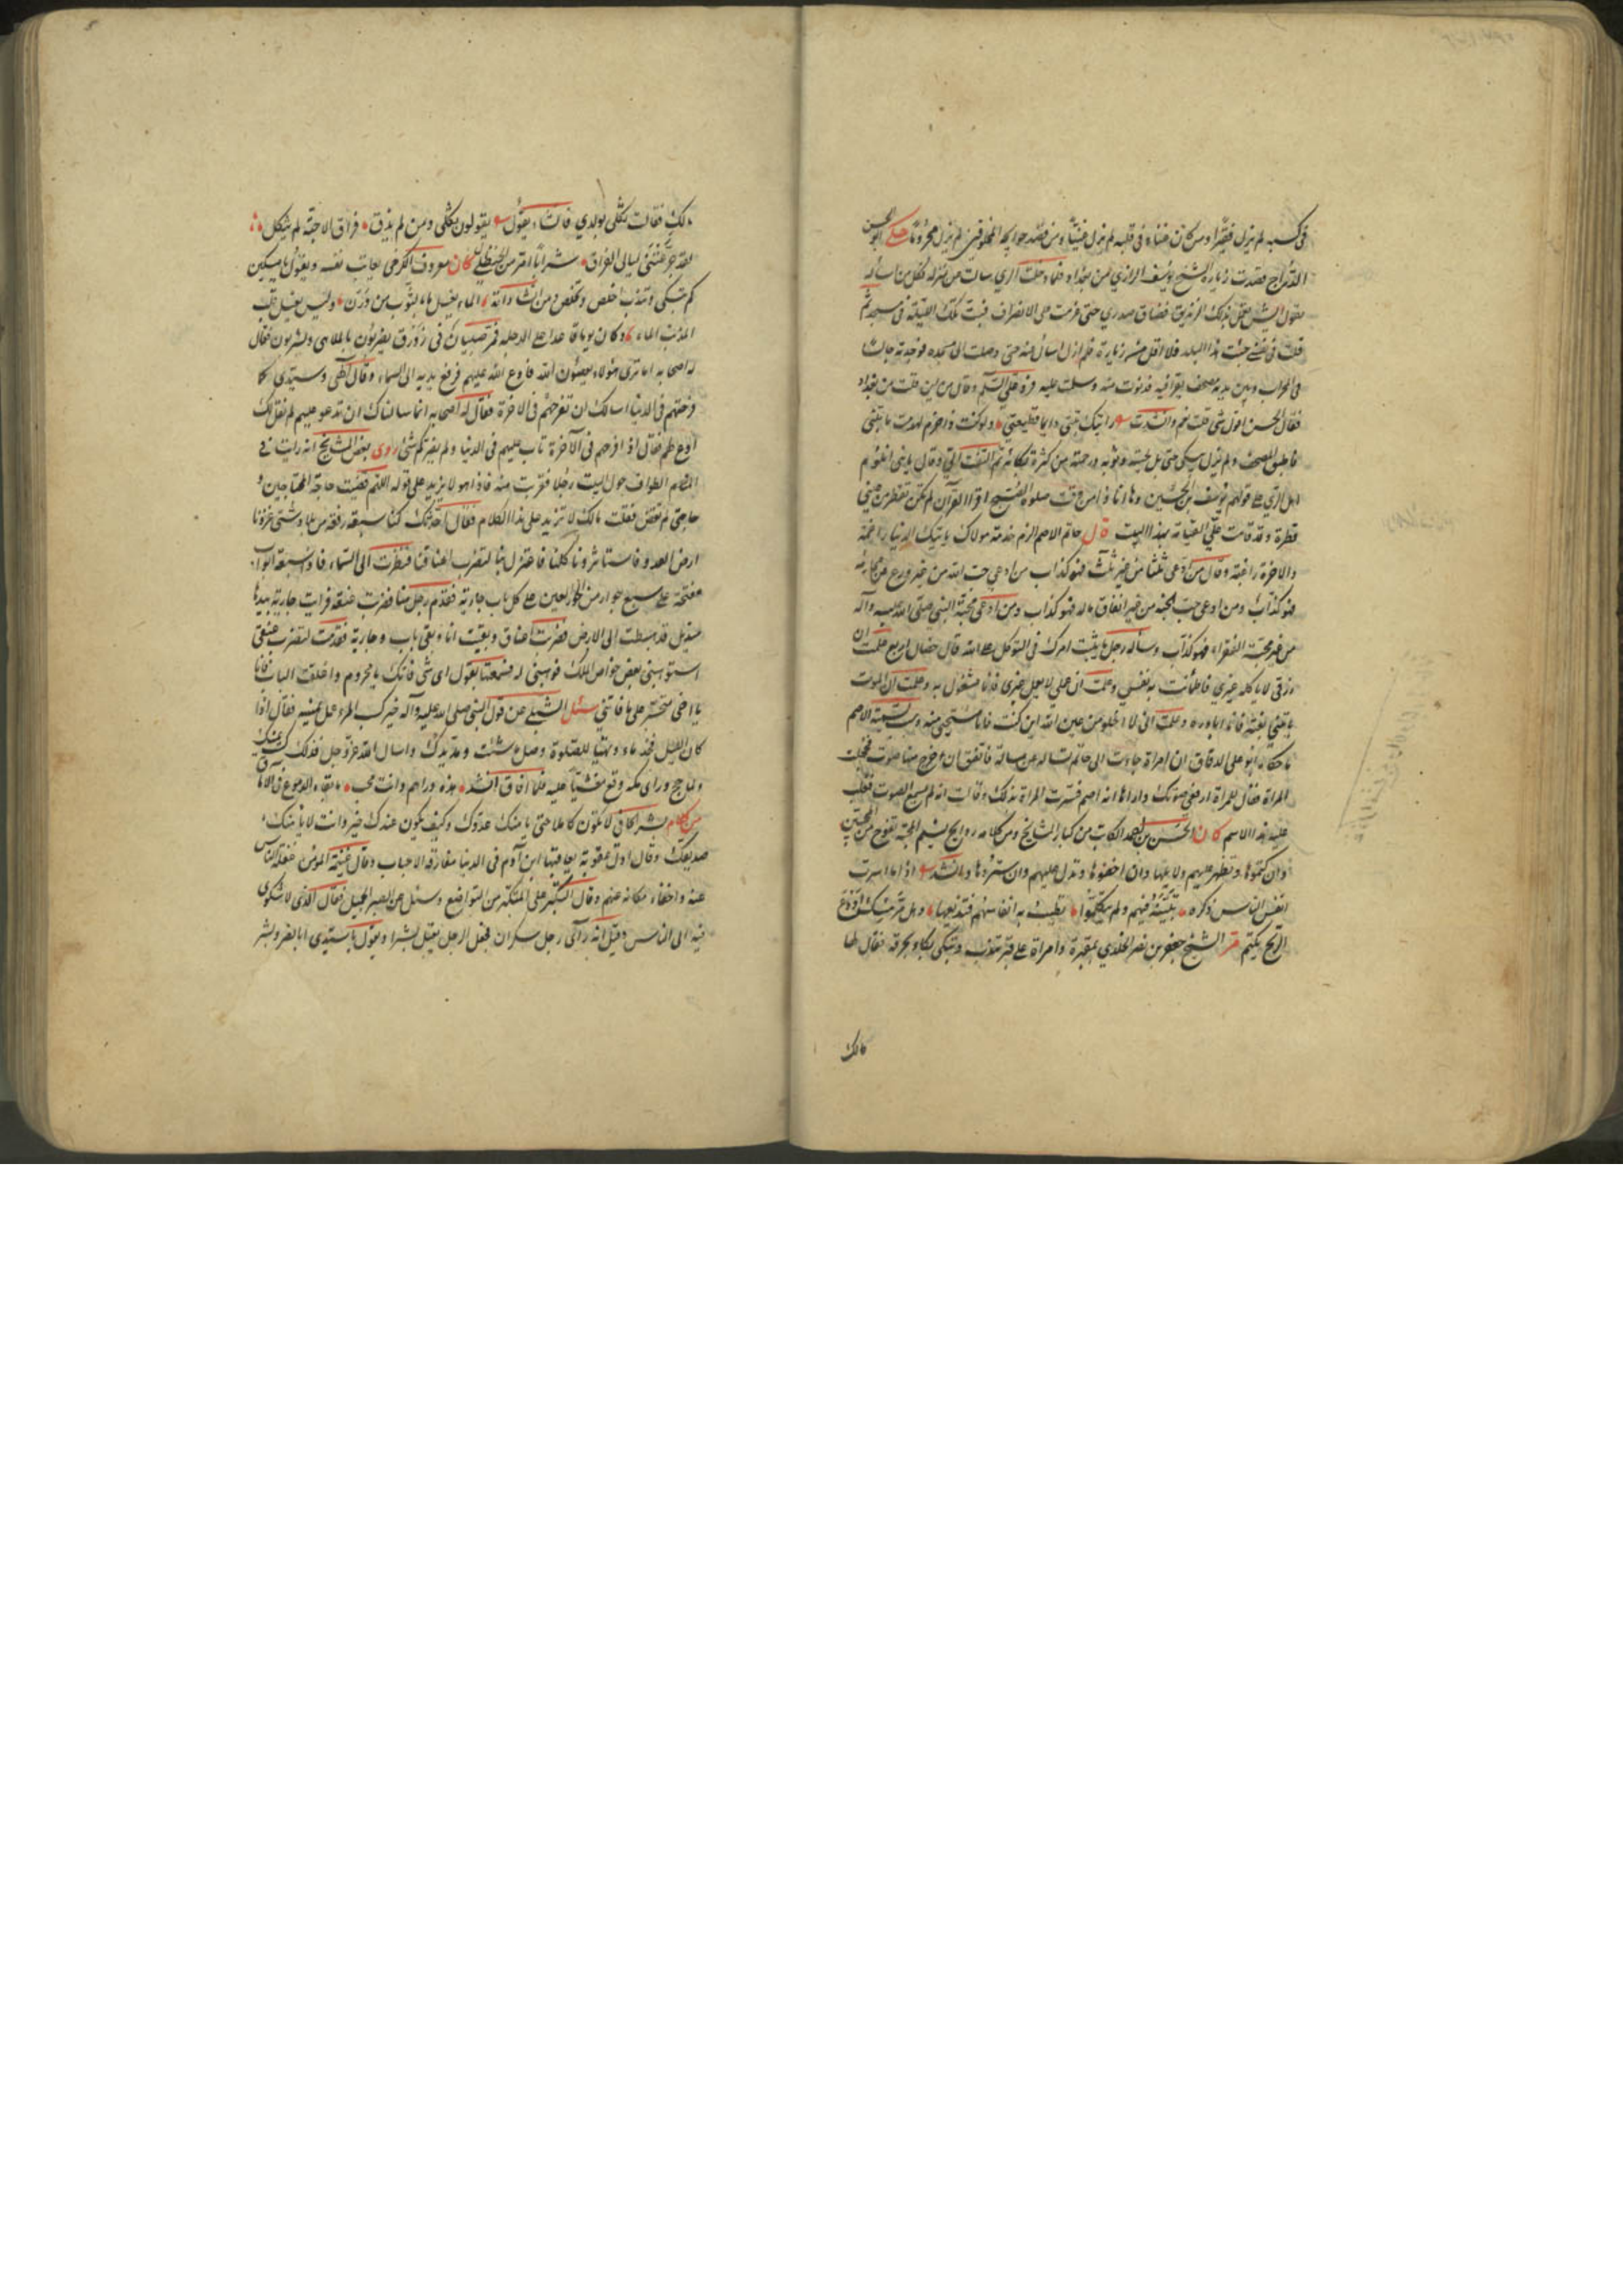 في كسبه لم يزل فقيرا ومن كان غناه في قلبه لم يزل غنيا ومن قصد بحوايجه المخلوقين لم يزل محروما حكى ابو الحسين
الدراج قصدت زيارة الشيخ يوسف الرازي من بغداد فلما دخلت الري سالت عن منزله فكل من اساله
يقول ايش تعمل بذلك الزنديق فضاق صدري حتى عزمت على الانصراف فبت تلك الليلة في مسجد ثم
قلت في نفسي جئت هذا البلد فلا اقل من زيارة فلم ازل اسال عنه حتى وصلت الى مسجده فوجدته جالسا
في المحراب وبين يديه مصحف يقرا فيه فدنوت منه وسلمت عليه فرد علي السلم وقال من اين قلت من بغداد
فقال اتحسن اقول شي قلت نعم وانشدت رايتك تبني دايما قطيعتي ولو كنت ذا حزم لهدمت ما تبني
فاطبق المصحف ولم يزل يبكي حتى بل لحيته وثوبه ورحمته من كثرة بكائه ثم التفت الي وقال يا بني اتلوم
اهل الري على قولهم يوسف بن الحسين وها انا ذا من وقت صلوة الصبح اقرا القرآن لم تكن تقطر من عيني
قطرة وقد قامت علي القيامة بهذا البيت قال حاتم الاصم الزم خدمة مولاك ياتيك الدنيا راغمة
والاخرة راغبة وقال من ادعى ثلثا من غير ثلث فهو كذاب من ادعى حب الله من غير ورع عن محارمه
فهو كذاب ومن ادعى حب الجنة من غير انفاق ماله فهو كذاب ومن ادعى محبة النبي صلى الله عليه وآله
من غير محبة الفقراء فهو كذاب وساله رجل ما بنيت امرك في التوكل على الله قال خصال اربع علمت ان
رزقي لا ياكله غيري فاطمأنت به نفسي وعلمت ان عملي لا يعمله غيري فانا مشغول به وعلمت ان الموت
ياتيني بغتة فانا ابادره وعلمت اني لا اخلو من عين الله اين كنت فانا مستحيي منه وسبب تسمية الاصم
ما حكاه ابو علي الدقاق ان امراة جاءت الى حاتم تساله عن مسالة فاتفق ان خرج منها صوت فخجلت
المراة فقال للمراة ارفعي صوتك واراها انه اصم فسرت المراة بذلك وقالت انه لم يسمع الصوت فغلب
عليه هذا الاسم كان الحسن بن احمد الكاتب من كبار المشايخ ومن كلامه روايح نسيم المحبة تفوح من المحبين
وان كتموها وتظهر عليهم دلايلها وان اخفوها وتدل عليهم وان ستروها وانشد اذا ما اسرت
انفس الناس ذكره تبينته فيهم ولم يتكلموا تطيب به انفاسهم فتذيعها وهل سر مسك اودع
الريح يكتم مر الشيخ جعفر بن نصر الخلدي بمقبرة وامراة على قبر تندب وتبكي بكاء بحرقة فقال لها
مالك
مالك فقالت ثكلى بولدي فانشأ يقول يقولون ثكلى ومن لم يذق فراق الاحبة لم يثكل
لقد جرعتني ليالي الفراق شرابا امر من الحنظل كان معروف الكرخي يعاتب نفسه ويقول يا مسكين
كم تبكي وتندب اخلص وتخلص ومن انشاداته الماء يغسل ما بالثوب من درن وليس يغسل قلب
المذنب الماء وكان يوما قاعدا على الدجلة فمر صبيان في زورق يضربون بالملاهي ويشربون فقال
له اصحابه اما ترى هؤلاء يعصون الله فادع الله عليهم فرفع يديه الى السماء وقال الهي وسيدي كما
فرحتهم في الدنيا اسالك ان تفرحهم في الاخرة فقال له اصحابه انما سالناك ان تدعو عليهم لم نقل لك
ادع لهم فقال اذا فرحهم في الآخرة تاب عليهم في الدنيا ولم يضركم شئ روى بعض المشايخ انه رايت في
الطواف حول البيت رجلا فقربت منه فاذا هو لا يزيد على قوله اللهم قضيت حاجة المحتاجين و
حاجتي لم تقض فقلت مالك لا تزيد على هذا الكلام فقال احدثك كنا سبعة رفقة من بلاد شتى غزونا
ارض العدو فاستاسرونا كلنا فاعتزل بنا لتضرب اعناقنا فنظرت الى السماء فاذا سبعة ابواب
مفتحة على سبع جوار من الحور العين على كل باب جارية فقدم رجل منا فضربت عنقه فرايت جارية بيدها
منديل قد هبطت الى الارض فضربت اعناق وبقيت انا وبقي باب وجارية فقدمت لتضرب عنقي
استوهبني بعض خواص الملك فوهبني له فسمعتها تقول اي شئ فاتك يا محروم واغلقت الباب فانا
يا اخي متحسر على ما فاتني سئل الشبلي عن قول النبي صلى الله عليه وآله خير كسب المرء عمل يمينه فقال اذا
كان الليل فخذ ماء وتهيا للصلوة وصل ما شئت ومد يدك واسال الله عز وجل فذلك كسب يمينك
ولما حج وراى مكة وقع مغشيا عليه فلما افاق انشد هذه دارهم وانت محب ما بقاء الدموع في الآماق
من كلام بشر الحافي لا تكون كاملا حتى يامنك عدوك وكيف يكون عندك خير وانت لا يامنك
صديقك وقال اول عقوبة يعاقبها ابن آدم في الدنيا مفارقة الاحباب وقال غنيمة المؤمن غفلة الناس
عنه واخفاء مكانه عنهم وقال التكبر على المتكبر من التواضع وسئل عن الصبر الجميل فقال الذي لا شكوى
فيه الى الناس وقيل انه رآى رجل سكران فجعل الرجل يقبل بشرا ويقول يا سيدي ابا نصر وبشر